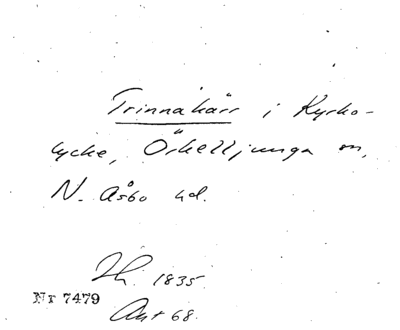 Trinnakärr i Kyrko-
lycke, Örkelljunga sn,
N. Åsbo hd.
Jh. 1835
Nr 7479
Akt 68.